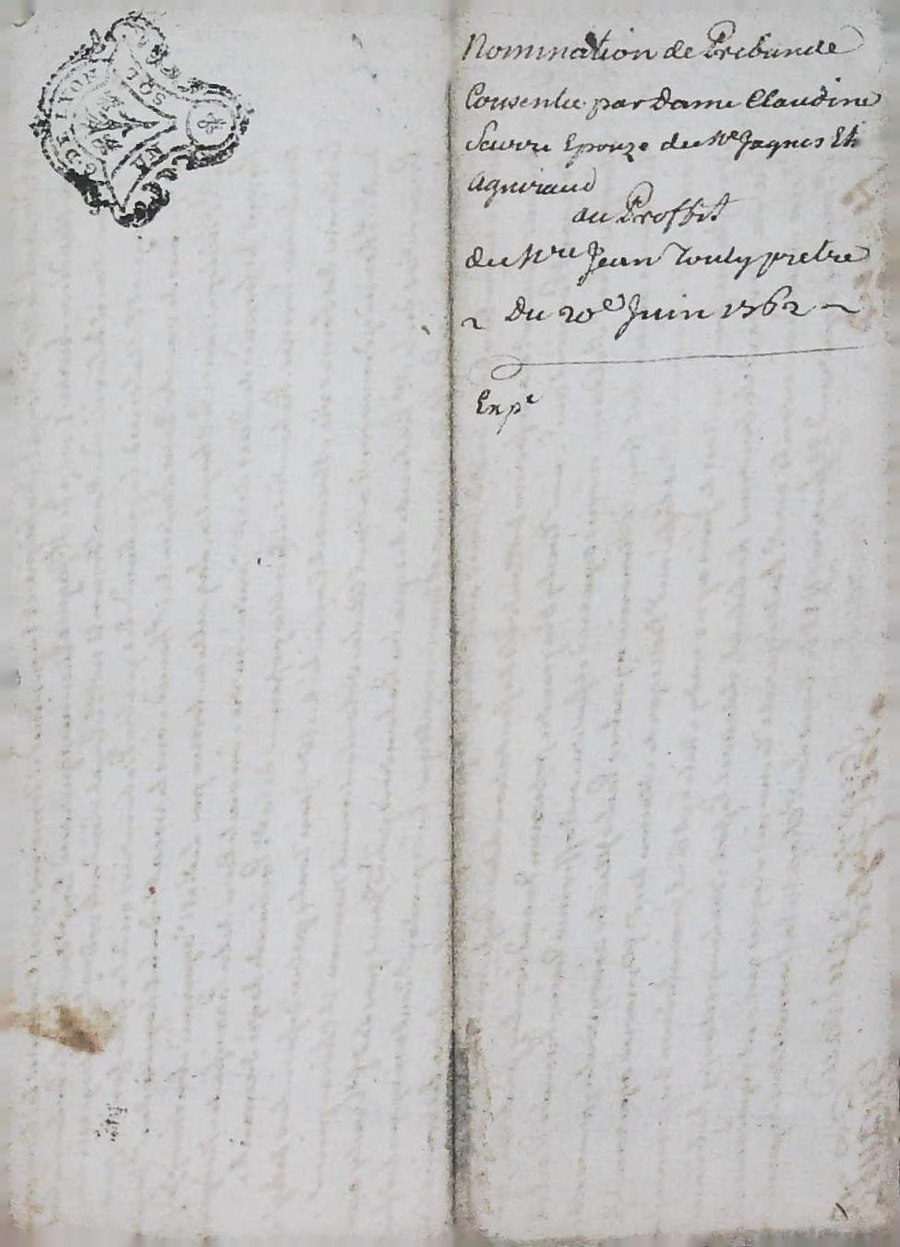 G. DE LYON
SOL
Nomination de Prebande
Consentie par Dame Claudine
Epouze de Mre Jaques Et
au Proffit
du Mre Jean Touly pretre
Du 20e Juin 1762
Expe